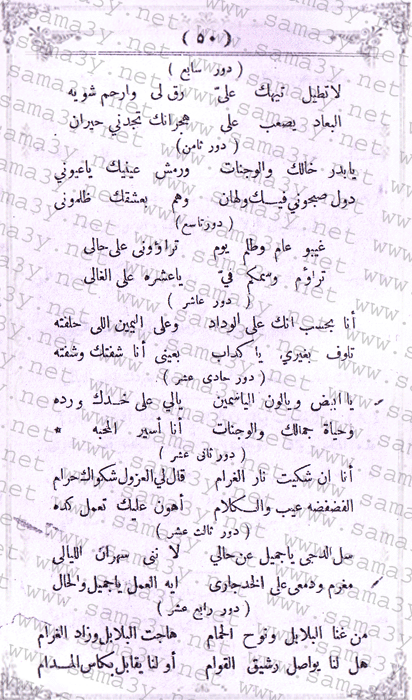 ( ٥٠ )
( دور سابع )
لا تطيل تيهك علىّ رق لى وارحم شويه
البعاد يصعب على هجرانك تجدنى حيران
( دور ثامن )
يابدر خالك والوجنات ورمش عينيك ياعيونى
دول صبحونى فيك ولهان وهم بعشقك ظلمونى
( دور تاسع )
غيبو عام وطلم يوم تراؤنى على حالى
تراؤم وسمكم فىّ ياعشره على الغالى
( دور عاشر )
أنا بحسب انك على الوداد وعلى اليمين اللى حلفته
تاوف بغيرى يا كداب بعينى أنا شفتك وشفته
( دور حادى عشر )
يا ابيض ويالون الياسمين يالي على خدك ورده
وحياة جمالك والوجنات أنا أسير المحبه *
( دور ثانى عشر )
أنا ان شكيت نار الغرام قال لي العزول شكواك حرام
الفضفضه عيب والكلام أهون عليك تعمل كده
( دور ثالث عشر )
سل الدجى ياجميل عن حالي لا تنى سهران الليالى
مغرم ودمعى على الخد جارى ايه العمل ياجميل والحال
( دور رابع عشر )
من غنا البلابل ونوح الحمام هاجت البلابل وزاد الغرام
هل لنا يواصل رشيق القوام أو لنا يقابل بكاس المدام
www.sama3y.net